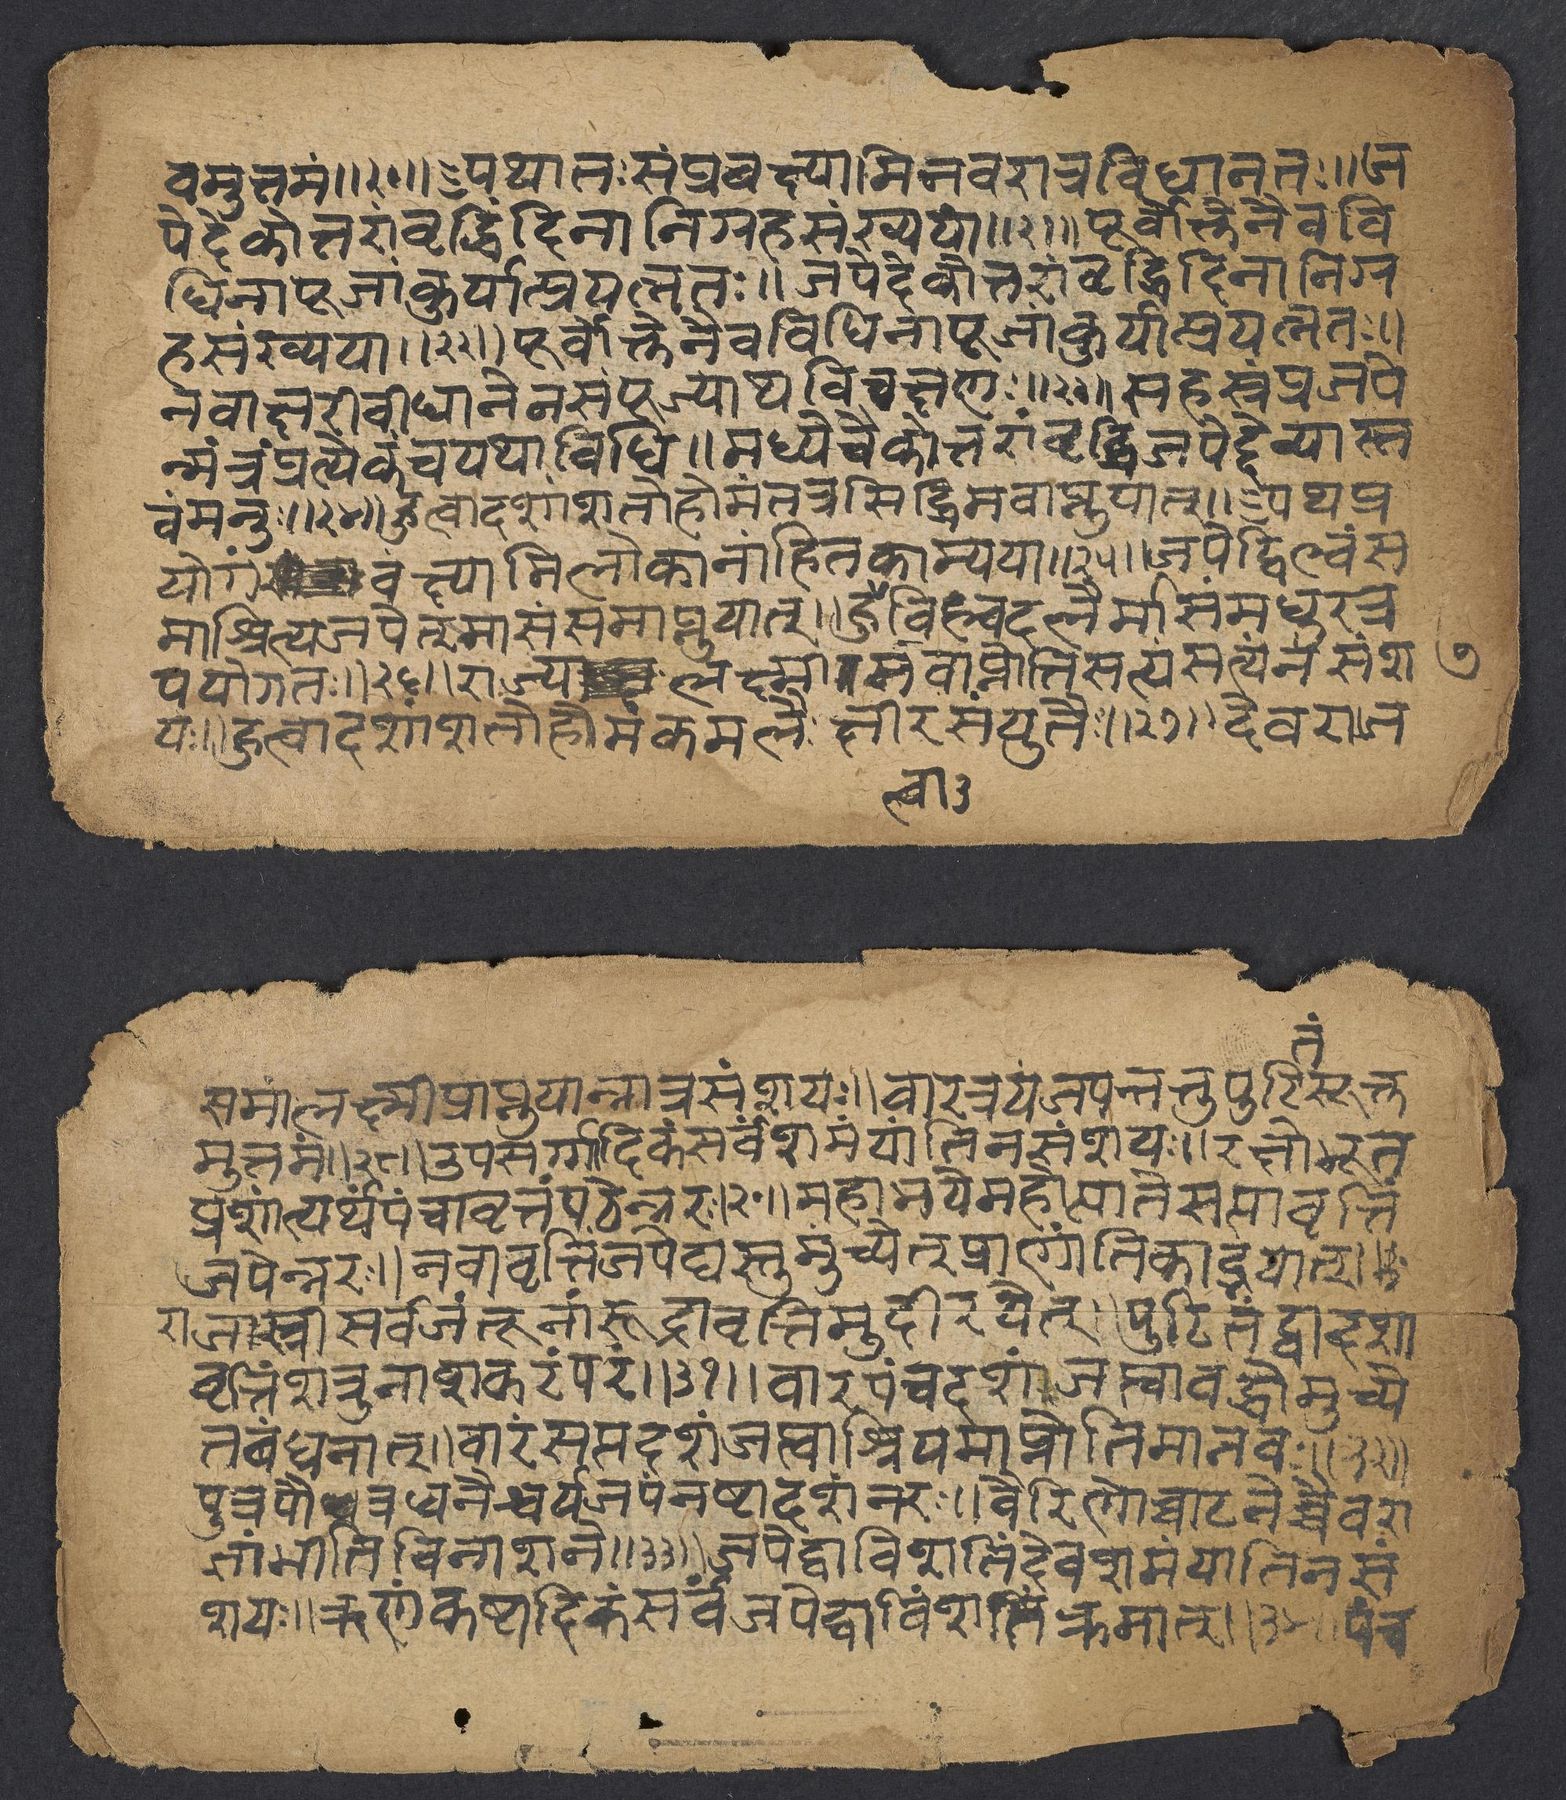 वमुत्तमं॥२०॥अथातःसंप्रवक्ष्यामिनवरात्रविधानतः॥ज
पेदेकोत्तरांवृद्धिंदिनानिग्रहसंख्यया॥२१॥पूर्वोक्तेनैववि
धिनापूजांकुर्यात्प्रयत्नतः॥जपेदेकोत्तरांवृद्धिंदिनानिग्र
हसंख्यया॥२२॥पूर्वोक्तेनैवविधिनापूजांकुर्यात्प्रयत्नतः॥
नवाक्षरीवीधानेनसंपूज्याथविचक्षणः॥२३॥सहस्रंप्रजपे
न्मंत्रंप्रत्येकंचयथाविधि॥मध्येचैकोत्तरांवृद्धिंजपेद्देव्यास्त
वंमनुः॥२४॥हुत्वादशांशतोहोमंतत्रसिद्धिमवाप्नुयात्॥अथप्र
योगंवक्ष्यामिलोकानांहितकाम्यया॥२५॥जपेद्बिल्वंस
माश्रित्यजपेत्मासंसमाप्नुयात्॥विल्वदलैर्मासंमधुरत्र
पयोगतः॥२६॥राज्यलक्ष्मीमवाप्नोतिसत्यंसत्यंनसंश
यः॥हुत्वादशांशतोहोमंकमलैःक्षीरसंयुतैः॥२७॥देवराज
त्वा३
७
तं
समांलक्ष्मीप्राप्नुयान्नात्रसंशयः॥वारत्रयंजपन्तत्तुपुटिसूक्त
मुत्तमं॥२८॥उपसर्ग्गादिकंसर्वंशमंयांतिनसंशयः॥रक्षोभूत
प्रशांत्यर्थंपंचावृत्तंपठेन्नरः।२९॥महाभयेमहोत्पातेसप्तावृत्तिं
जपेन्नरः॥नवावृत्तिंजपेद्यस्तुमुच्येत्प्राणांतिकाद्भयात्॥३०
राजास्त्रीसर्वजंतूनांरूद्रावृत्तिमुदीरयेत्॥पुटितंद्वादशा
वृत्तिंशत्रुनाशकरंपरं॥३१॥वारपंचदशंजप्त्वावद्धोमुच्ये
तबंधनात्॥वारंसप्तदशंजप्त्वाश्रियमाप्नोतिमानवः॥३२॥
पुत्रपौत्रध्यनैश्वर्यजपंनष्टादशंनरः॥वैरिणोच्चाटनेचैवरा
ज्ञांभीतिविनाशने॥३३॥जपेद्वाविंशतिंदेवशमंयातिनसं
शयः॥ऋणंकष्टादिकंसर्वंजपेद्वाविंशतिंक्रमात्॥३४॥पंच